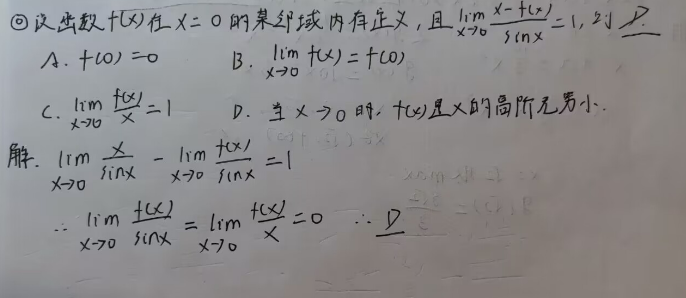 ◎设函数f(x)在x=0的某邻域内有定义,且lim x→0 (x-f(x))/sinx=1,则 D.
A. f(0)=0 B. lim x→0 f(x)=f(0)
C. lim x→0 f(x)/x=1 D. 当x→0时,f(x)是x的高阶无穷小.
解. lim x→0 x/sinx - lim x→0 f(x)/sinx =1
∴ lim x→0 f(x)/sinx = lim x→0 f(x)/x =0 ∴ D